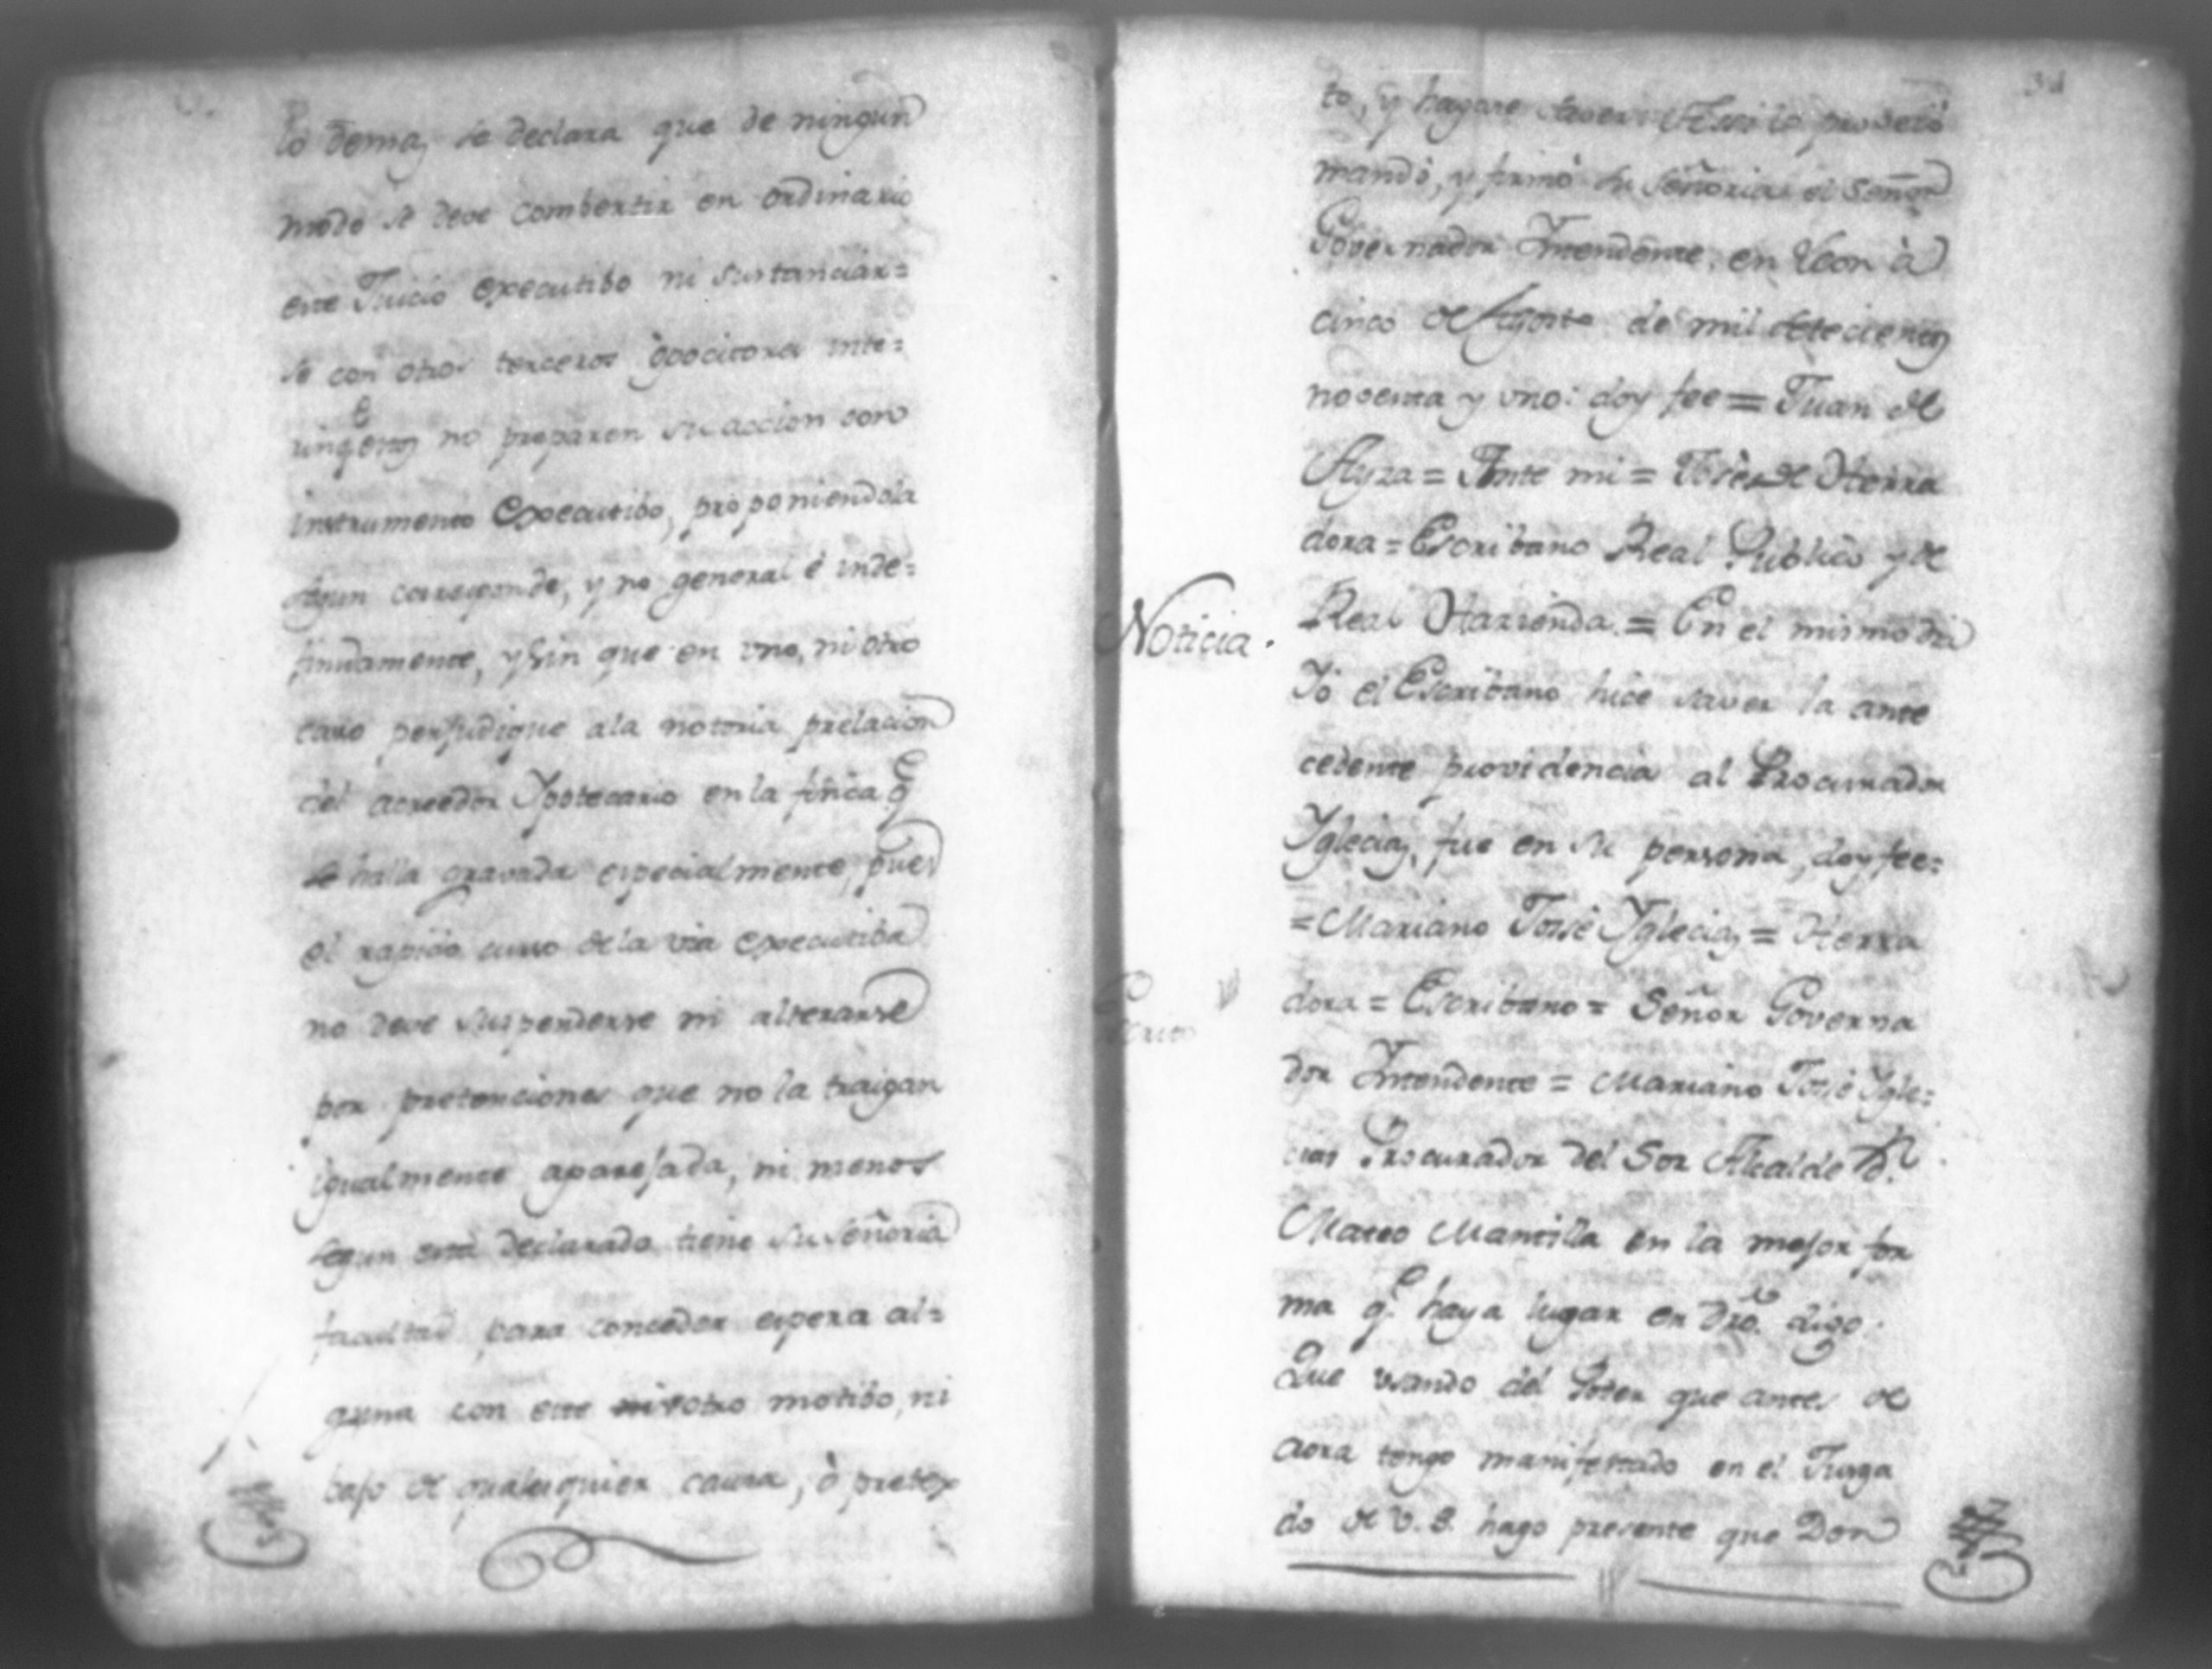 lo demas se declara que de ningun
modo se deve combertir en ordinario
este Juicio executibo ni sustanciar=
se con otros terceros opocitores inte=
rin estos no preparen su accion con
instrumento executibo, proponiendola
segun corresponde, y no general é inde=
finidamente, y sin que en uno, ni otro
caso perjudique a la notoria prelacion
del acreedor Ypotecario en la finca q.e
se halla gravada especialmente, pues
el rapido curso de la via executiba
no deve suspenderse ni alterarse
por pretenciones que no la traigan
igualmente aparejada, ni menos
segun está declarado tiene su señoria
facultad para conceder espera al=
guna con este ni otro motibo, ni
bajo de qualesquier causa, ò pretex
to, y hagase saver: Assi lo proveió
mandó, y firmó su Señoria el Señor
Governador Yntendente, en Leon à
cinco de Agosto de mil setecientos
noventa y uno: doy fee = Juan de
Ayza = Ante mi = José de Herra
dora = Escribano Real Publico y de
Noticia.
Real Hacienda. = En el mismo dia
Yo el Escribano hice saver la ante
cedente providencia al Procurador
Yglecias, fue en su persona, doy fee=
= Mariano José Yglecias = Herra
dora = Escribano = Señor Governa
dor Yntendente = Mariano José Ygle=
cias Procurador del Sor Alcalde D.n
Mateo Mantilla en la mejor for
ma q.e haya lugar en dro. digo.
Que usando del Poter que antes de
aora tengo manifestado en el Jusga
do de V.S. hago presente que Don